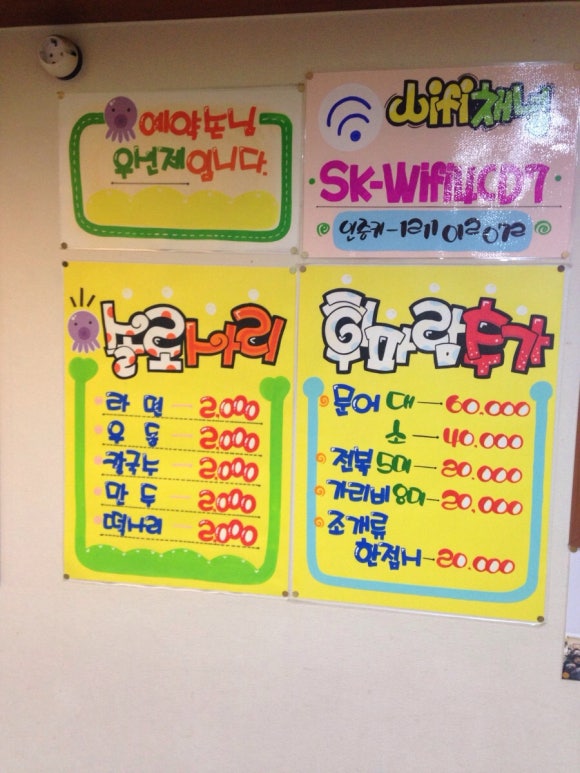 예약손님
우선제입니다.
wifi채널
SK-WifiUCD7
인증키-1211012072
놀로사리
라면 — 2.000
우동 — 2.000
칼국수 — 2.000
만두 — 2.000
떡사리 — 2.000
휘파람추가
문어 대 → 60.000
소 → 40.000
전복 5미 → 20.000
가리비 8미 → 20.000
조개류
한접시 → 20.000